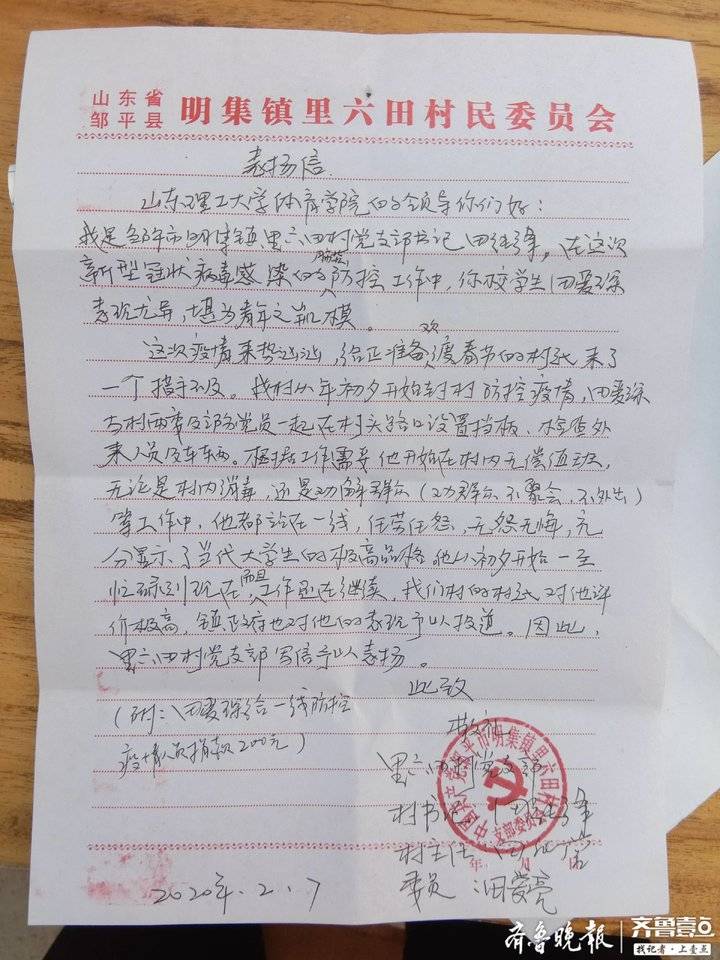 山东省
邹平县
明集镇里六田村民委员会
表扬信
山东理工大学体育学院的领导你们好:
我是邹平市明集镇里六田村党支部书记田 ,在这次
新型冠状病毒感染的肺炎防控工作中,你校学生田爱琛
表现尤异,堪为青年之楷模。
这次疫情来势汹汹,给正准备欢度春节的村民来了
一个措手不及。我村从年初夕开始封村防控疫情,田爱琛
与村两委及部分党员一起在村头路口设置挡板、检查外
来人员及车辆。根据工作需要他开始在村内无偿值班,
无论是村内消毒,还是劝解群众(劝群众不聚会,不外出)
等工作中,他都站在一线,任劳任怨,无怨无悔,充
分显示了当代大学生的极高品格他从初夕开始一至
忙碌到现在,而且工作还在继续,我们村的村民对他评
价极高,镇政府也对他的表现予以报道。因此,
里六田村党支部写信予以表扬。
此致
敬礼
(附:田爱琛给一线防控
疫情人员捐款200元)
里六田村党支部
村书记:田
村主任:田
委员:田爱亮
年 月 日
2020年.2.7
中国共产党邹平市明集镇里六田村
支部委员会
齐鲁晚报
齐鲁壹点
找记者·上壹点